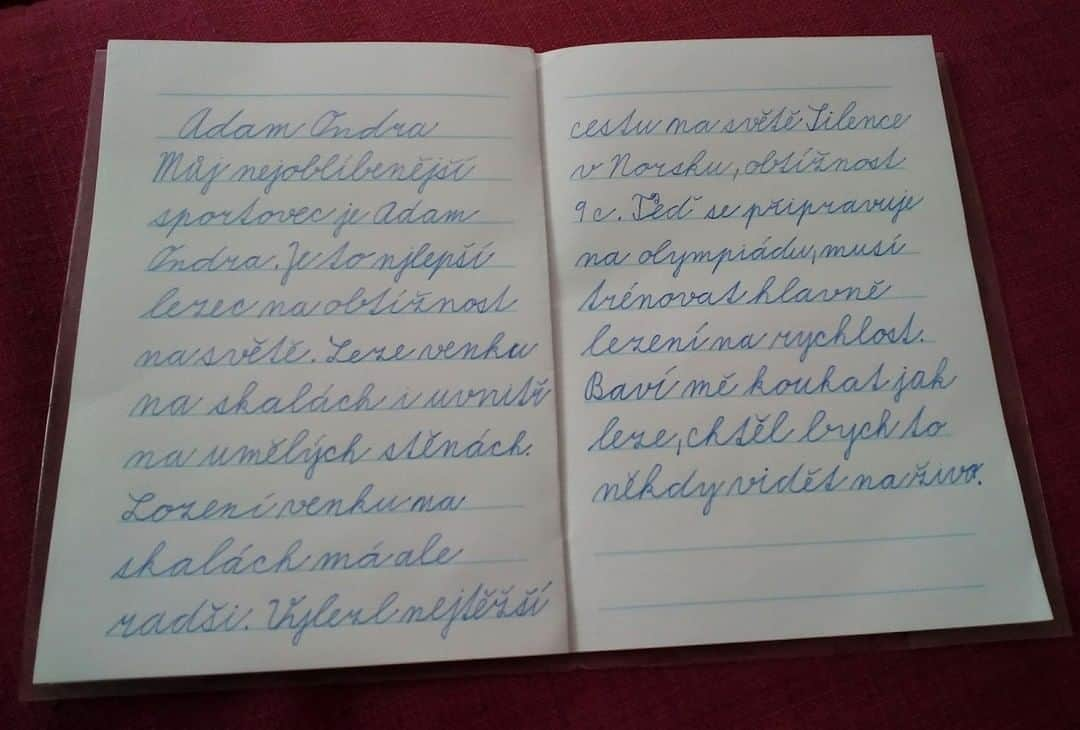 Adam Ondra
Můj nejoblíbenější
sportovec je Adam
Ondra. Je to njlepší
lezec na obtížnost
na světě. Leze venku
na skalách i uvnitř
na umělých stěnách.
Lození venku na
skalách má ale
radši. Vylezl nejtěžší
cestu na světě Silence
v Norsku, obtížnost
9c. Teď se připravuje
na olympiádu, musí
trénovat hlavně
lezení na rychlost.
Baví mě koukat jak
leze, chtěl bych to
někdy vidět na živo.